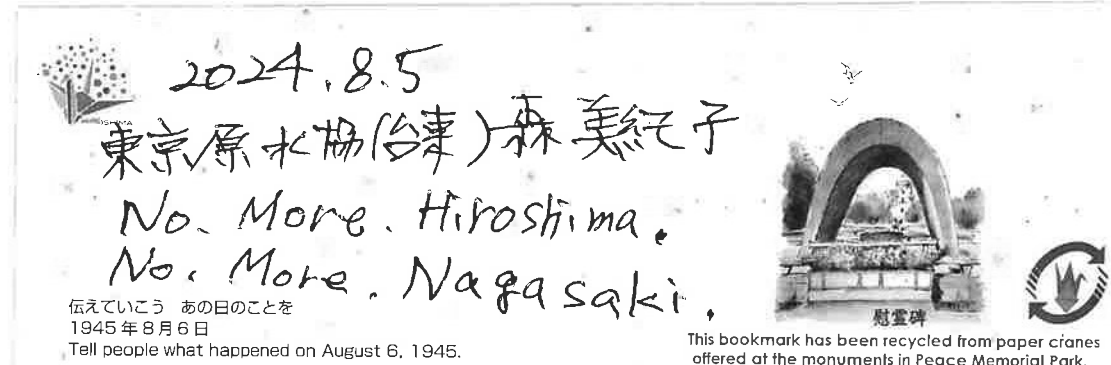 2024.8.5
東京原水協(台東)森美紀子
No. More. Hiroshima.
No. More. Nagasaki.
伝えていこう あの日のことを
1945年8月6日
Tell people what happened on August 6, 1945.
慰霊碑
This bookmark has been recycled from paper cranes
offered at the monuments in Peace Memorial Park.